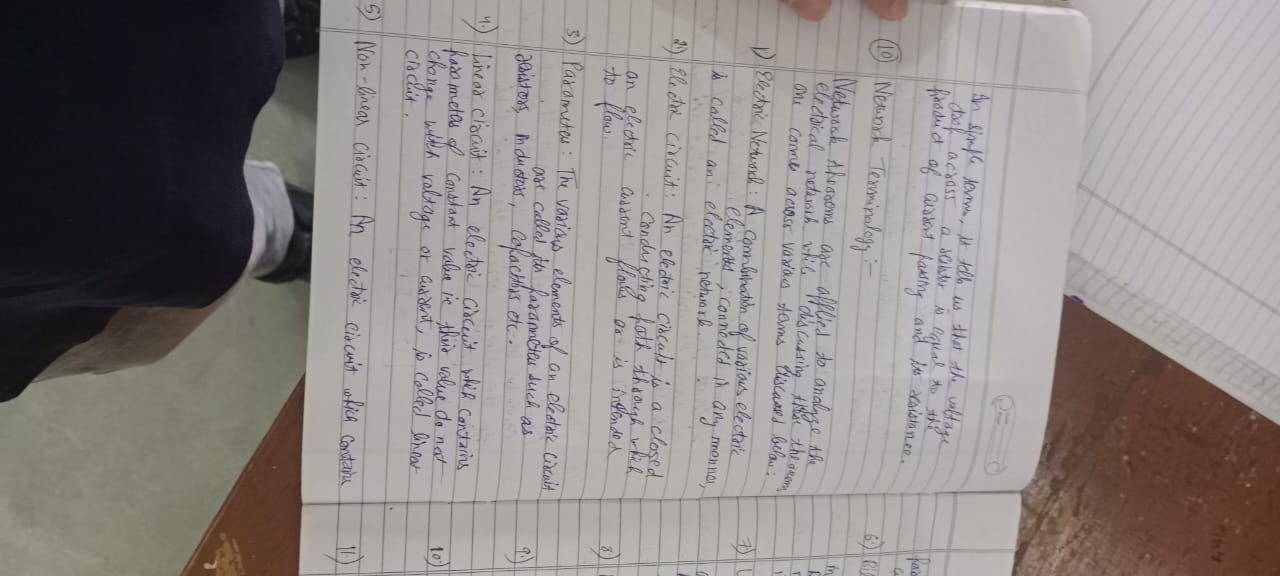 In simple terms, it tells us that the voltage
drop across a resistor is equal to the
product of current passing and its resistance.
10 Network Terminology :-
Network theorems are applied to analyze the
electrical network while discussing these theorems
one come across various terms discussed below:
1) Electric Network : A combination of various electric
elements, connected in any manner,
is called an electric network
2) Electric circuit: An electric circuit is a closed
conducting path through which
an electric current flows or is intended
to flow
3) Parameters : The various elements of an electric circuit
are called its parameters such as
resistors, inductors, capacitors etc.
4.) Linear circuit : An electric circuit which contains
parameters of constant value ie their value do not
change with voltage or current, is called linear
circuit.
5) Non-linear circuit : An electric circuit which contains
6.)
7)
8)
9.)
10)
11)